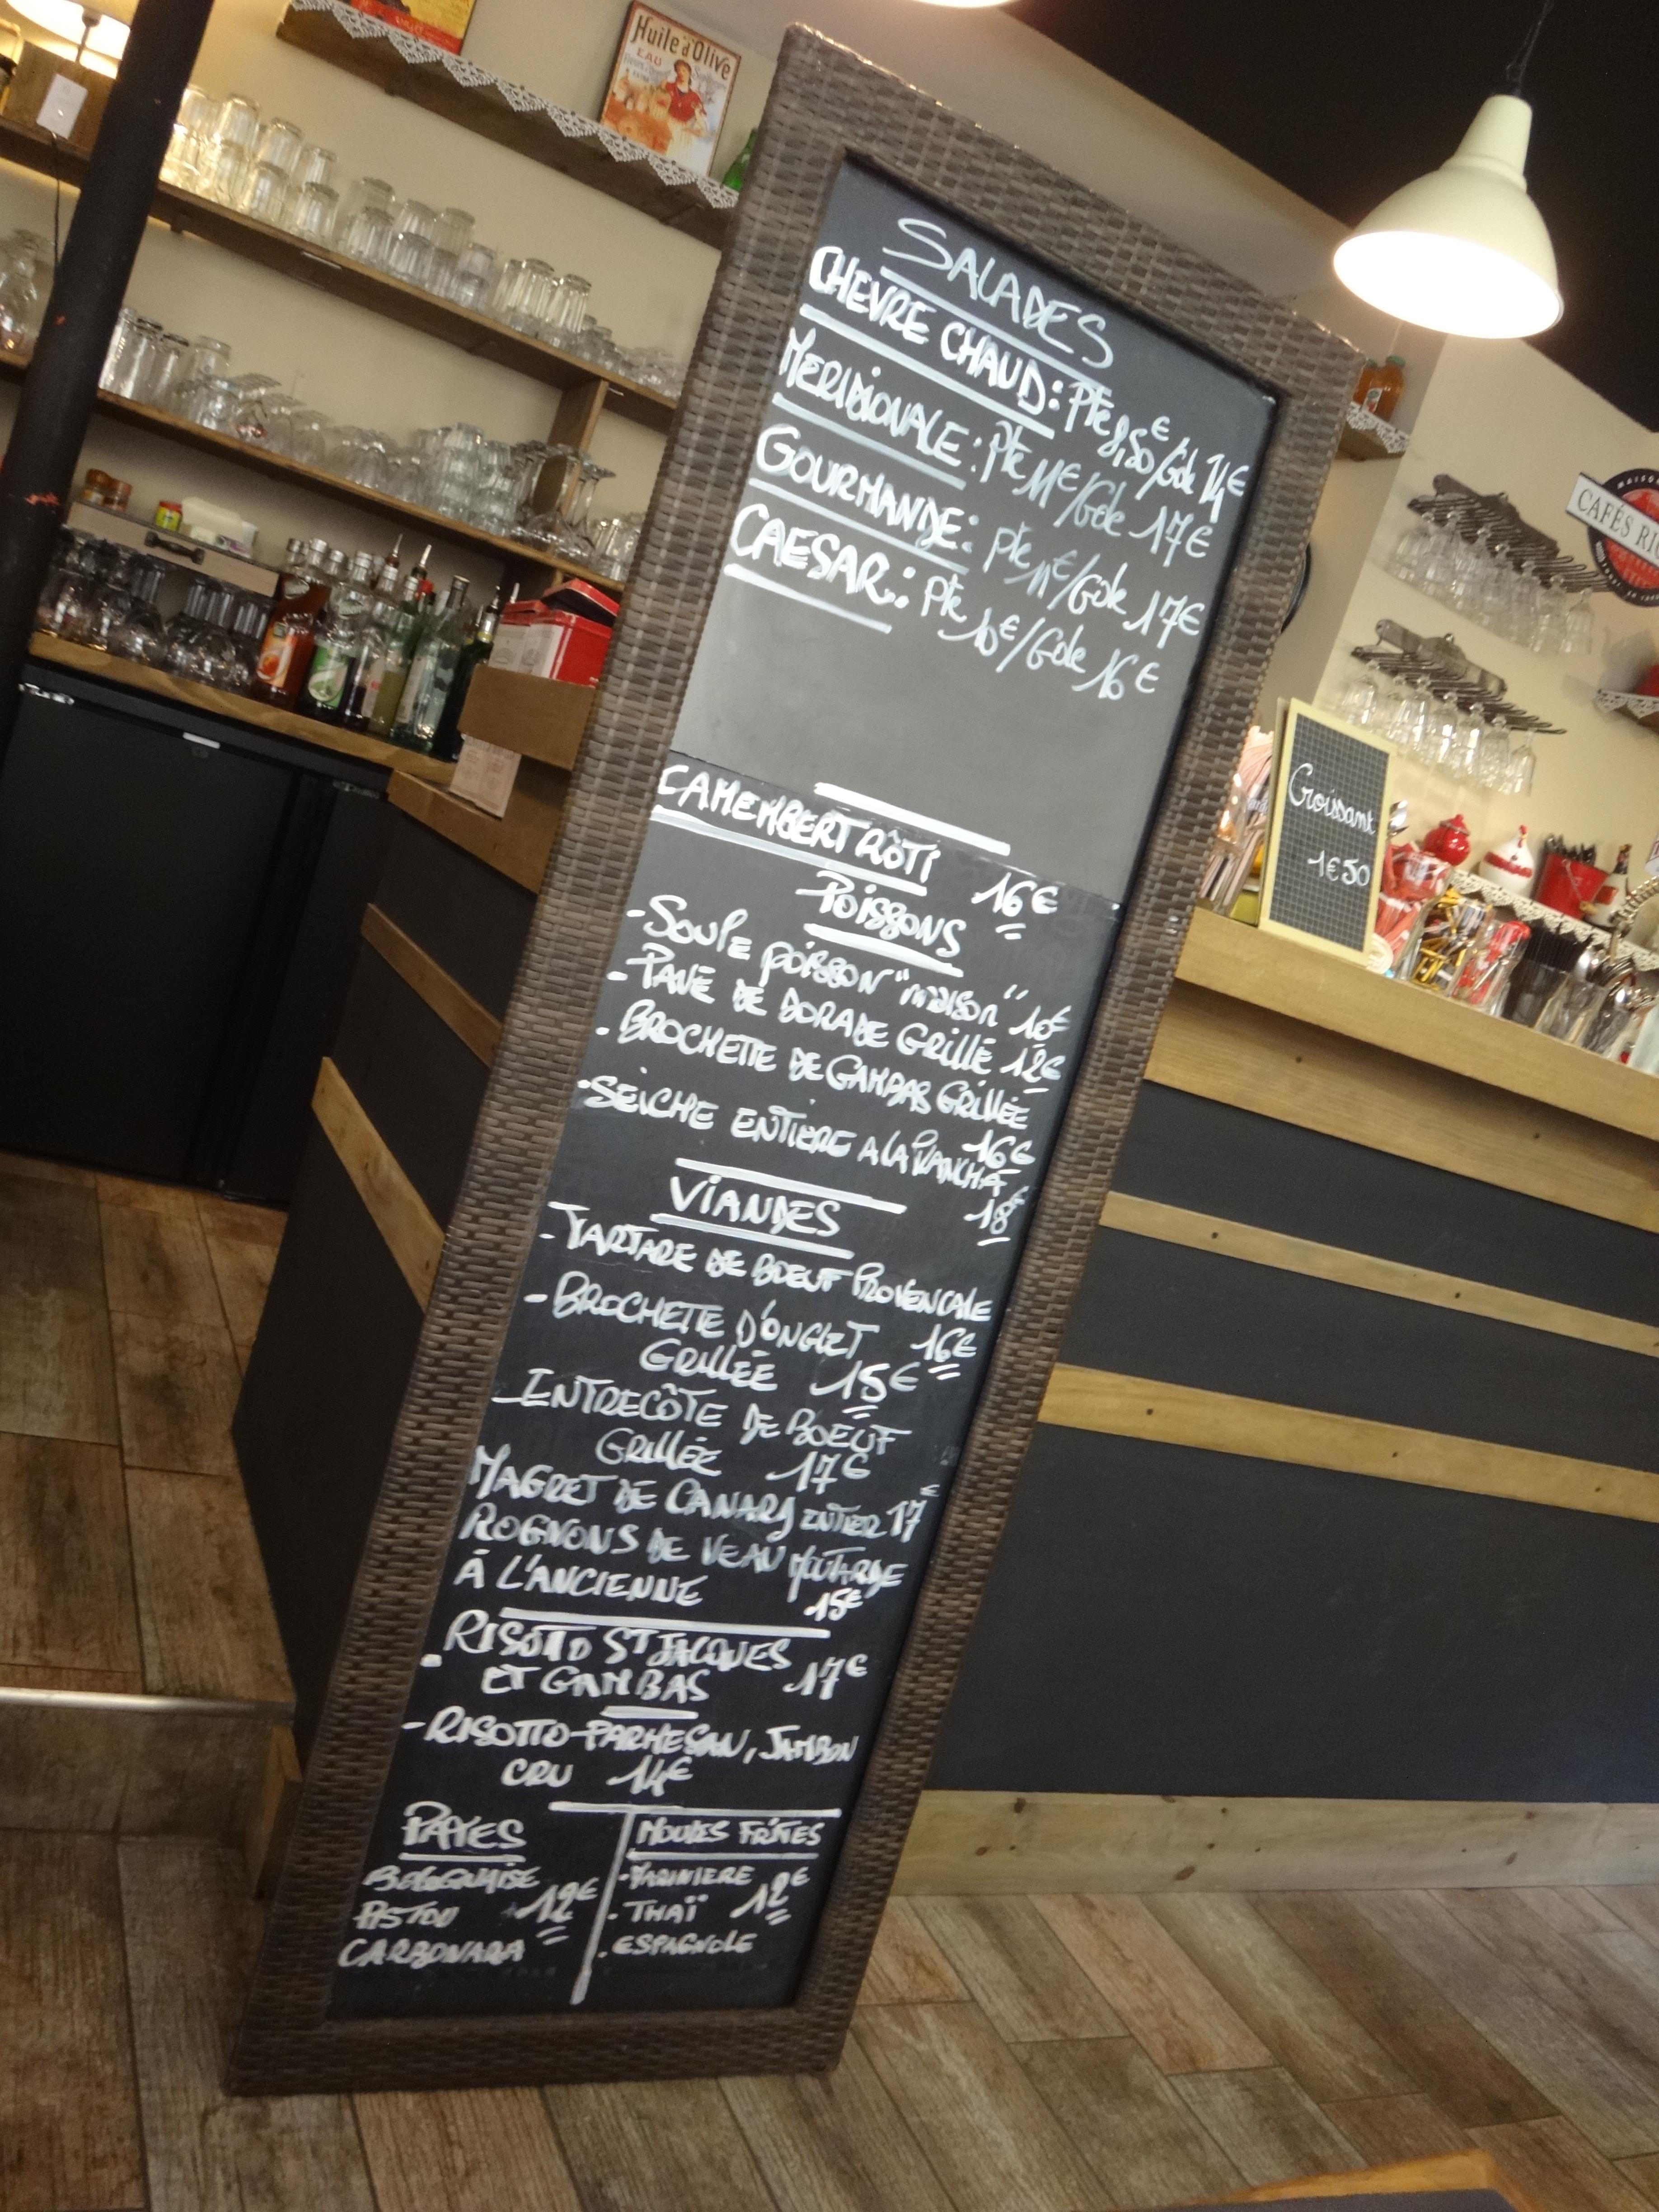 Huile d'Olive
SALADES
CHEVRE CHAUD: Pte 8,50€/Gde 14€
MERIDIONALE: Pte 11€/Gde 17€
GOURMANDE: Pte 11€/Gde 17€
CAESAR: Pte 10€/Gde 16€
CAMEMBERT RÔTI 16€
POISSONS
-SOUPE POISSON "MAISON" 10€
-PAVÉ DE DORADE GRILLÉ 12€
-BROCHETTE DE GAMBAS GRILLÉE
16€
-SEICHE ENTIERE A LA PLANCHA
18€
VIANDES
-TARTARE DE BOEUF PROVENCALE
16€
-BROCHETTE D'ONGLET
GRILLÉE 15€
-ENTRECÔTE DE BOEUF
GRILLÉE 17€
MAGRET DE CANARD ENTIER 17€
ROGNONS DE VEAU MOUTARDE
À L'ANCIENNE 15€
-RISOTTO ST JACQUES
ET GAMBAS 17€
-RISOTTO PARMESAN, JAMBON
CRU 14€
PATES
BOLOGNAISE
PISTOU 12€
CARBONARA
MOULES FRITES
-MARINIERE
-THAÏ 12€
-ESPAGNOLE
Croissant
1€50
CAFÉS